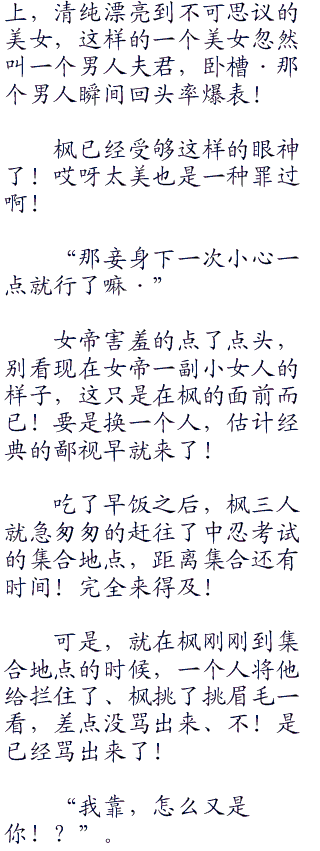 上，清纯漂亮到不可思议的
美女，这样的一个美女忽然
叫一个男人夫君，卧槽·那
个男人瞬间回头率爆表！
枫已经受够这样的眼神
了！哎呀太美也是一种罪过
啊！
“那妾身下一次小心一
点就行了嘛·”
女帝害羞的点了点头，
别看现在女帝一副小女人的
样子，这只是在枫的面前而
已！要是换一个人，估计经
典的鄙视早就来了！
吃了早饭之后，枫三人
就急匆匆的赶往了中忍考试
的集合地点，距离集合还有
时间！完全来得及！
可是，就在枫刚刚到集
合地点的时候，一个人将他
给拦住了、枫挑了挑眉毛一
看，差点没骂出来、不！是
已经骂出来了！
“我靠，怎么又是
你！？”。